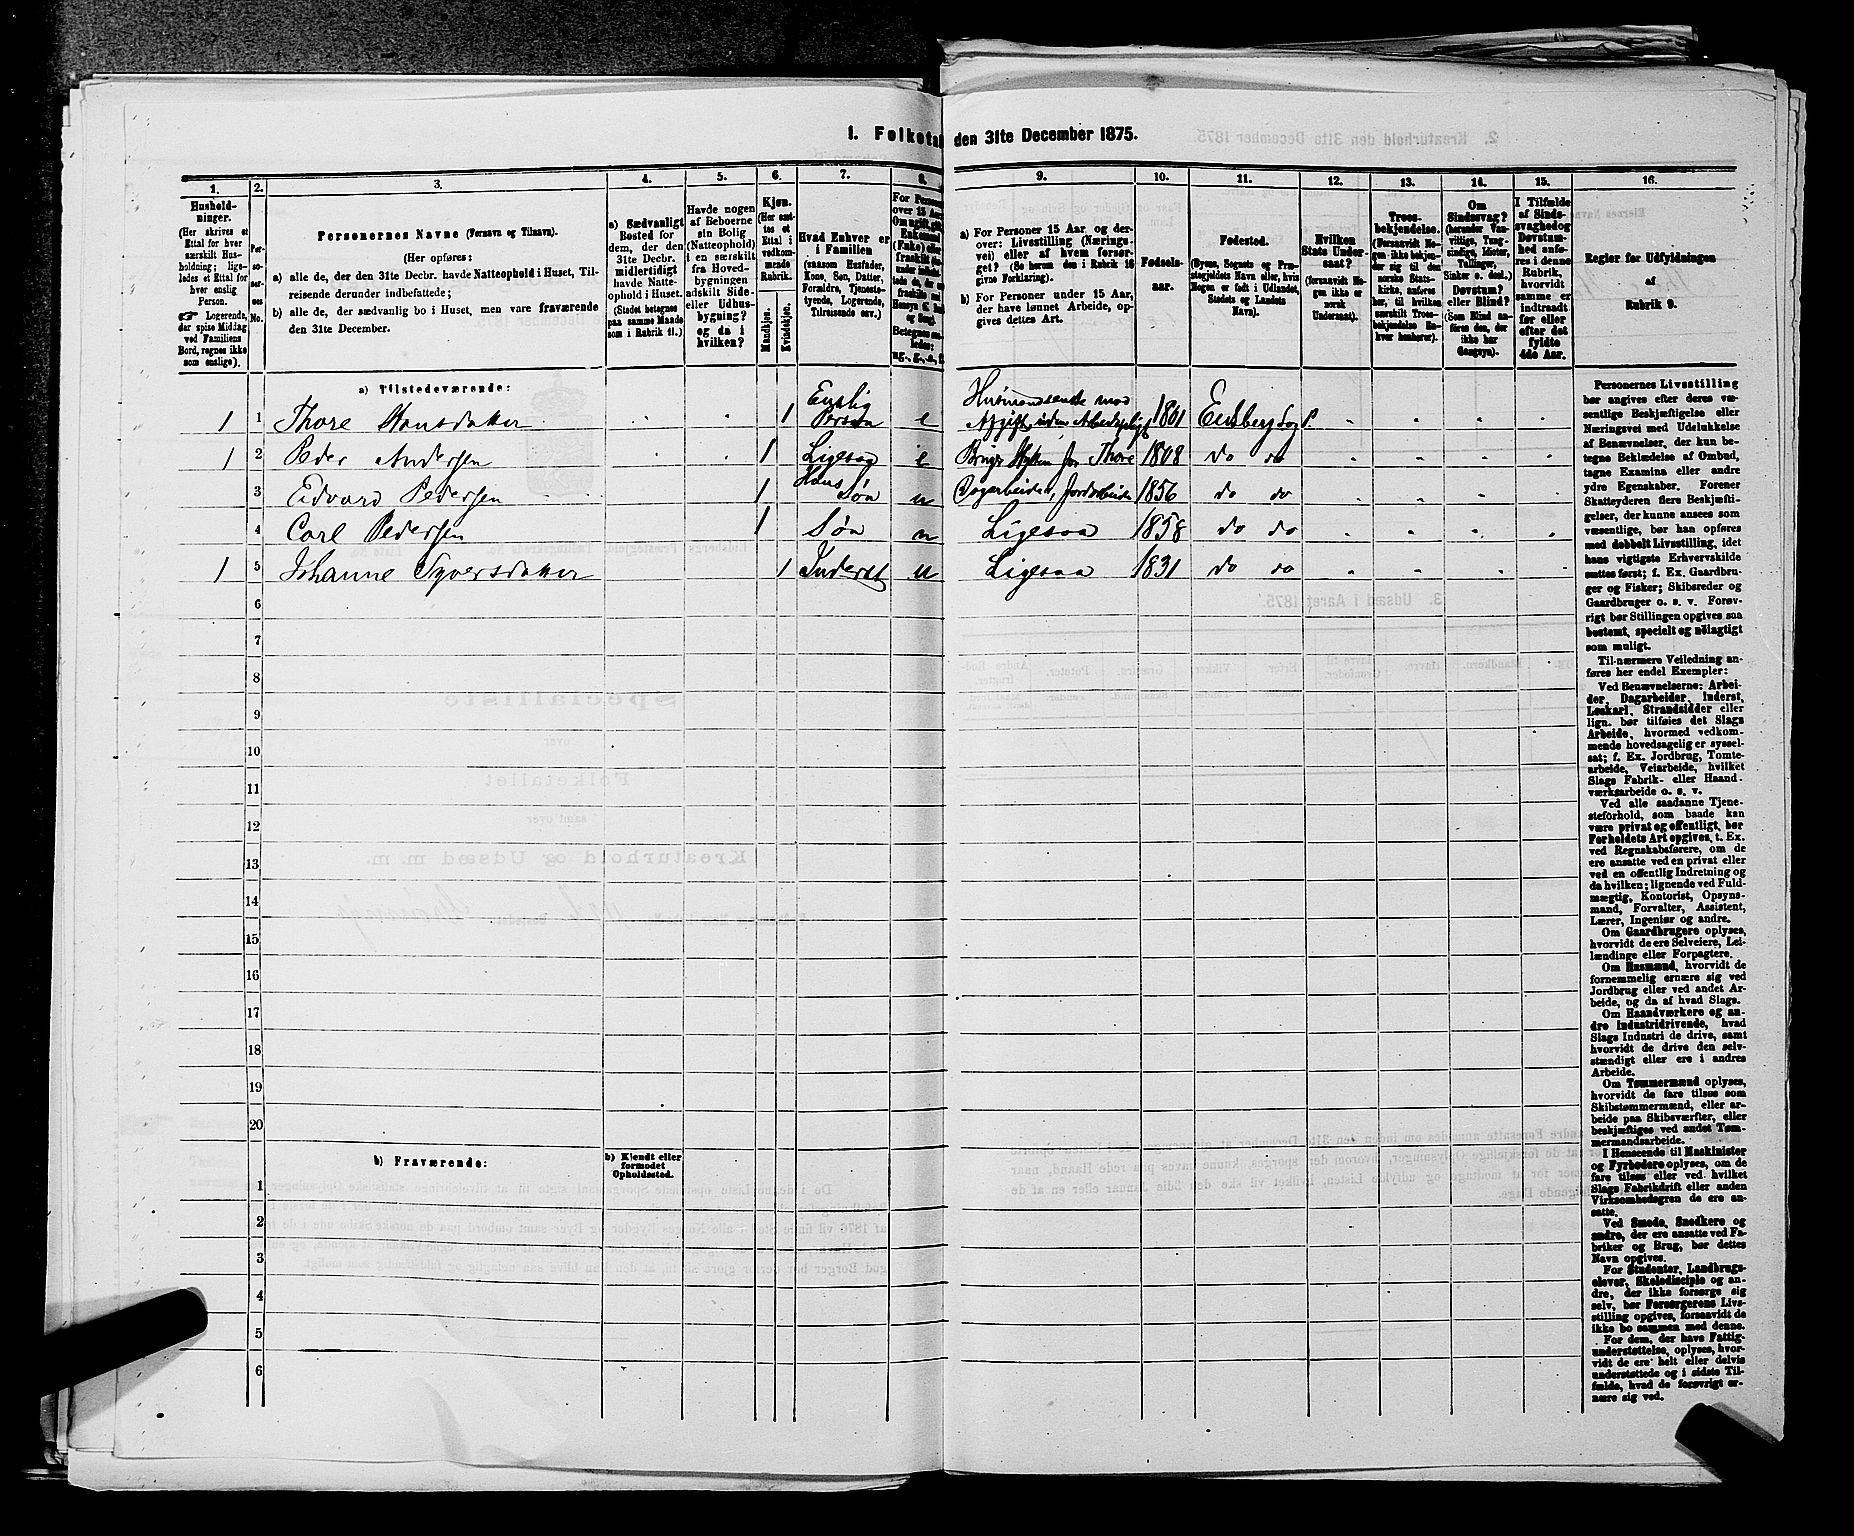 1. Folketal den 31te December 1875.
1. 2. 3. 4. 5. 6. 7. 8. 9. 10. 11. 12. 13. 14. 15. 16.
Hushold-
ninger.
(Her skrives et
Ettal for hver
særskilt Hus-
holdning; lige-
ledes et Ettal for
hver enslig
Person.
☞ Logerende,
der spise Middag
ved Familiens
Bord, regnes ikke
som enslige).
Per-
so-
ner-
nes
No.
Personernes Navne (Fornavn og Tilnavn).
(Her opføres:
a) alle de, der den 31te Decbr. havde Natteophold i Huset, Til-
reisende derunder indbefattede;
b) alle de, der sædvanlig bo i Huset, men vare fraværende
den 31te December.
a) Sædvanligt
Bosted for
dem, der den
31te Decbr.
midlertidigt
havde Natte-
ophold i Huset.
(Stedet betegnes
paa samme Maade
som i Rubrik 11.)
Havde nogen
af Beboerne
sin Bolig
(Natteophold)
i en særskilt
fra Hoved-
bygningen
adskilt Side-
eller Udhus-
bygning?
og da i
hvilken?
Kjøn.
(Her sæt-
tes et
Ettal i
vedkom-
mende
Rubrik.
Mandkjøn.
Kvindekjøn.
Hvad Enhver er
i Familien
(saasom Husfader,
Kone, Søn, Datter,
Forældre, Tjeneste-
tyende, Logerende,
Tilreisende osv.)
For Personer
over 15 Aar:
a) For Personer 15 Aar og der-
over: Livsstilling (Nærings-
vei) eller af hvem forsør-
get? (Se herom den i Rubrik 16
givne Forklaring).
b) For Personer under 15 Aar,
der have lønnet Arbeide, op-
gives dettes Art.
Fødsels-
aar.
Fødested.
(Byens, Sognets og Præ-
stegjeldets Navn eller, hvis
Nogen er født i Udlandet,
Stedets og Landets
Navn).
Hvilken
Stats Under-
saat?
(forsaavidt No-
gen ikke er
norsk
Undersaat).
Troes-
bekjendelse.
(Forsaavidt No-
gen ikke beken-
der sig til den
norske Stats-
kirke, anføres
her, til hvilken
særskilt Troes-
bekjendelse En-
hver henhører).
Om
Sindssvag?
(herunder Van-
vittige, Tung-
sindige, Idioter,
Tullinger,
Sinker o. desl.)
Døvstum?
eller Blind?
(Som Blind an-
føres den, der
ikke har
Gangsyn).
I Tilfælde
af Sinds-
svaghed og
Døvstum-
hed anfø-
res i denne
Rubrik,
hvorvidt
samme er
indtraadt
før eller
efter det
fyldte
4de Aar.
Regler for Udfyldningen
af
Rubrik 9.
a) Tilstedeværende:
1 1 Thore Hansdatter 1 Enslig Person e Husmandsenke med Afgift, uden Arbeidspligt 1801 Eidsberg Sogn
1 2 Peder Andersen 1 Ligesaa e 1808 do do
3 Edvard Pedersen 1 Hans Søn u Dagarbeider, Jordarbeide 1856 do do
4 Carl Pedersen 1 Søn u Ligesaa 1858 do do
1 5 Johanne Syversdatter 1 Inderst u Ligesaa 1831 do do
6
7
8
9
10
11
12
13
14
15
16
17
18
19
20
b) Fraværende:
b) Kjendt eller
formodet
Opholdssted.
1
2
3
4
5
6
Personernes Livsstilling
bør angives efter deres væ-
sentlige Beskjæftigelse eller
Næringsvei med Udelukkelse
af Benævnelser, der kun be-
tegne Beklædelse af Ombud,
tagne Examina eller andre
ydre Egenskaber. Forener
Skatteyderen flere Beskjæfti-
gelser, der kunne ansees som
væsentlige, bør han opføres
med dobbelt Livsstilling, idet
hans vigtigste Erhvervskilde
sættes først; f. Ex. Gaardbru-
ger og Fisker; Skibsreder og
Gaardbruger o. s. v. Forøv-
rigt bør Stillingen opgives saa
bestemt, specielt og nøiagtigt
som muligt.
Til nærmere Veiledning an-
føres her endel Exempler:
Ved Benævnelserne: Arbei-
der, Dagarbeider, Inderst,
Løskarl, Strandsidder eller
lign. bør tilføies det Slags
Arbeide, hvormed vedkom-
mende hovedsagelig er syssel-
sat; f. Ex. Jordbrug, Tomte-
arbeide, Veiarbeide, hvilket
Slags Fabrik- eller Haand-
værksarbeide o. s. v.
Ved alle saadanne Tjene-
steforhold, som baade kan
være privat og offentligt, bør
Forholdets Art opgives, t. Ex.
ved Regnskabsførere, om de
ere ansatte ved en privat eller
ved en offentlig Indretning og
da hvilken; lignende ved Fuld-
mægtig, Kontorist, Opsyns-
mand, Forvalter, Assistent,
Lærer, Ingeniør og andre.
Om Gaardbrugere oplyses,
hvorvidt de ere Selveiere, Lei-
lændinge eller Forpagtere.
Om Husmænd, hvorvidt de
fornemmelig ernære sig ved
Jordbrug eller ved andet Ar-
beide, og da af hvad Slags.
Om Haandværkere og an-
dre Industridrivende, hvad
Slags Industri de drive, samt
hvorvidt de drive den selv-
stændigt eller ere i andres
Arbeide.
Om Tømmermænd oplyses,
hvorvidt de fare tilsøs som
Skibstømmermænd, eller ar-
beide paa Skibsværfter, eller
beskjæftiges ved andet Tøm-
mermandsarbeide.
I Henseende til Maskinister
og Fyrbødere oplyses, om de
fare tilsøs eller ved hvilket
Slags Fabrikdrift eller anden
Virksomhedsgren de ere an-
satte.
Ved Smede, Snedkere og
andre, der ere ansatte ved Fa-
briker og Brug, bør dettes
Navn opgives.
For Studenter, Landbrugs-
elever, Skoledisciple og an-
dre, der ikke forsørge sig
selv, bør Forsørgerens Livs-
stilling opgives, forsaavidt de
ikke bo sammen med denne.
For dem, der have Fattig-
understøttelse, oplyses, hvor-
vidt de ere helt eller delvis
understøttede og i sidste Til-
fælde, hvad de forøvrigt er-
nære sig ved.